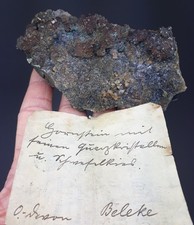 Hornstein mit
feinen Quarzkristallen
u. Schwefelkies.
O-Devon Beleke